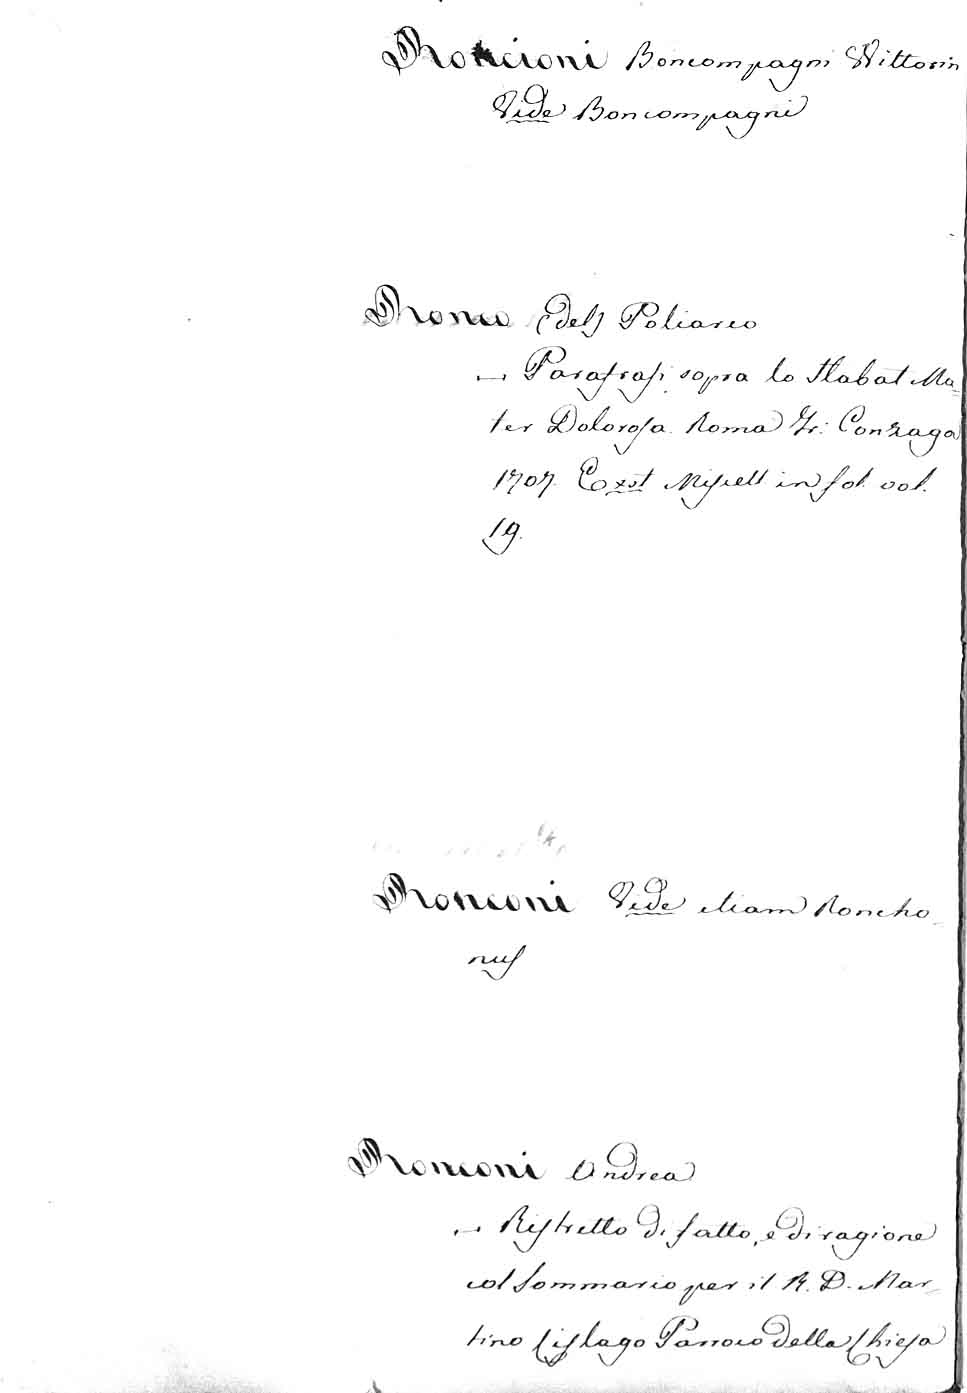 Roncioni Boncompagni Vittorin
Vide Boncompagni
Ronco (del) Poliarco
— Parafrasi sopra lo Stabat Ma-
ter Dolorosa. Roma Fr: Gonzaga
1707. Exst Miscell in fol. vol.
19.
Ronconi Vide etiam Roncho-
nus
Ronconi Andrea
— Ristretto di fatto, e di ragione
col Sommario per il R. D. Mar-
tino Cislago Parroco della Chiesa